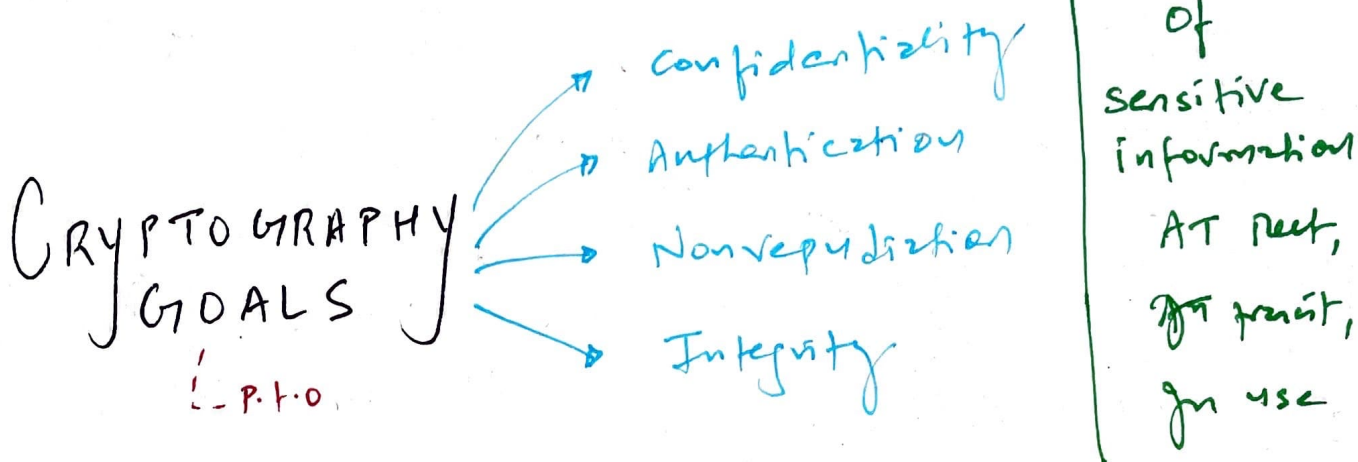 CRYPTOGRAPHY
GOALS
P.t.o.
Confidentiality
Authentication
Nonrepudiation
Integrity
Of
sensitive
information
AT rest,
In transit,
In use